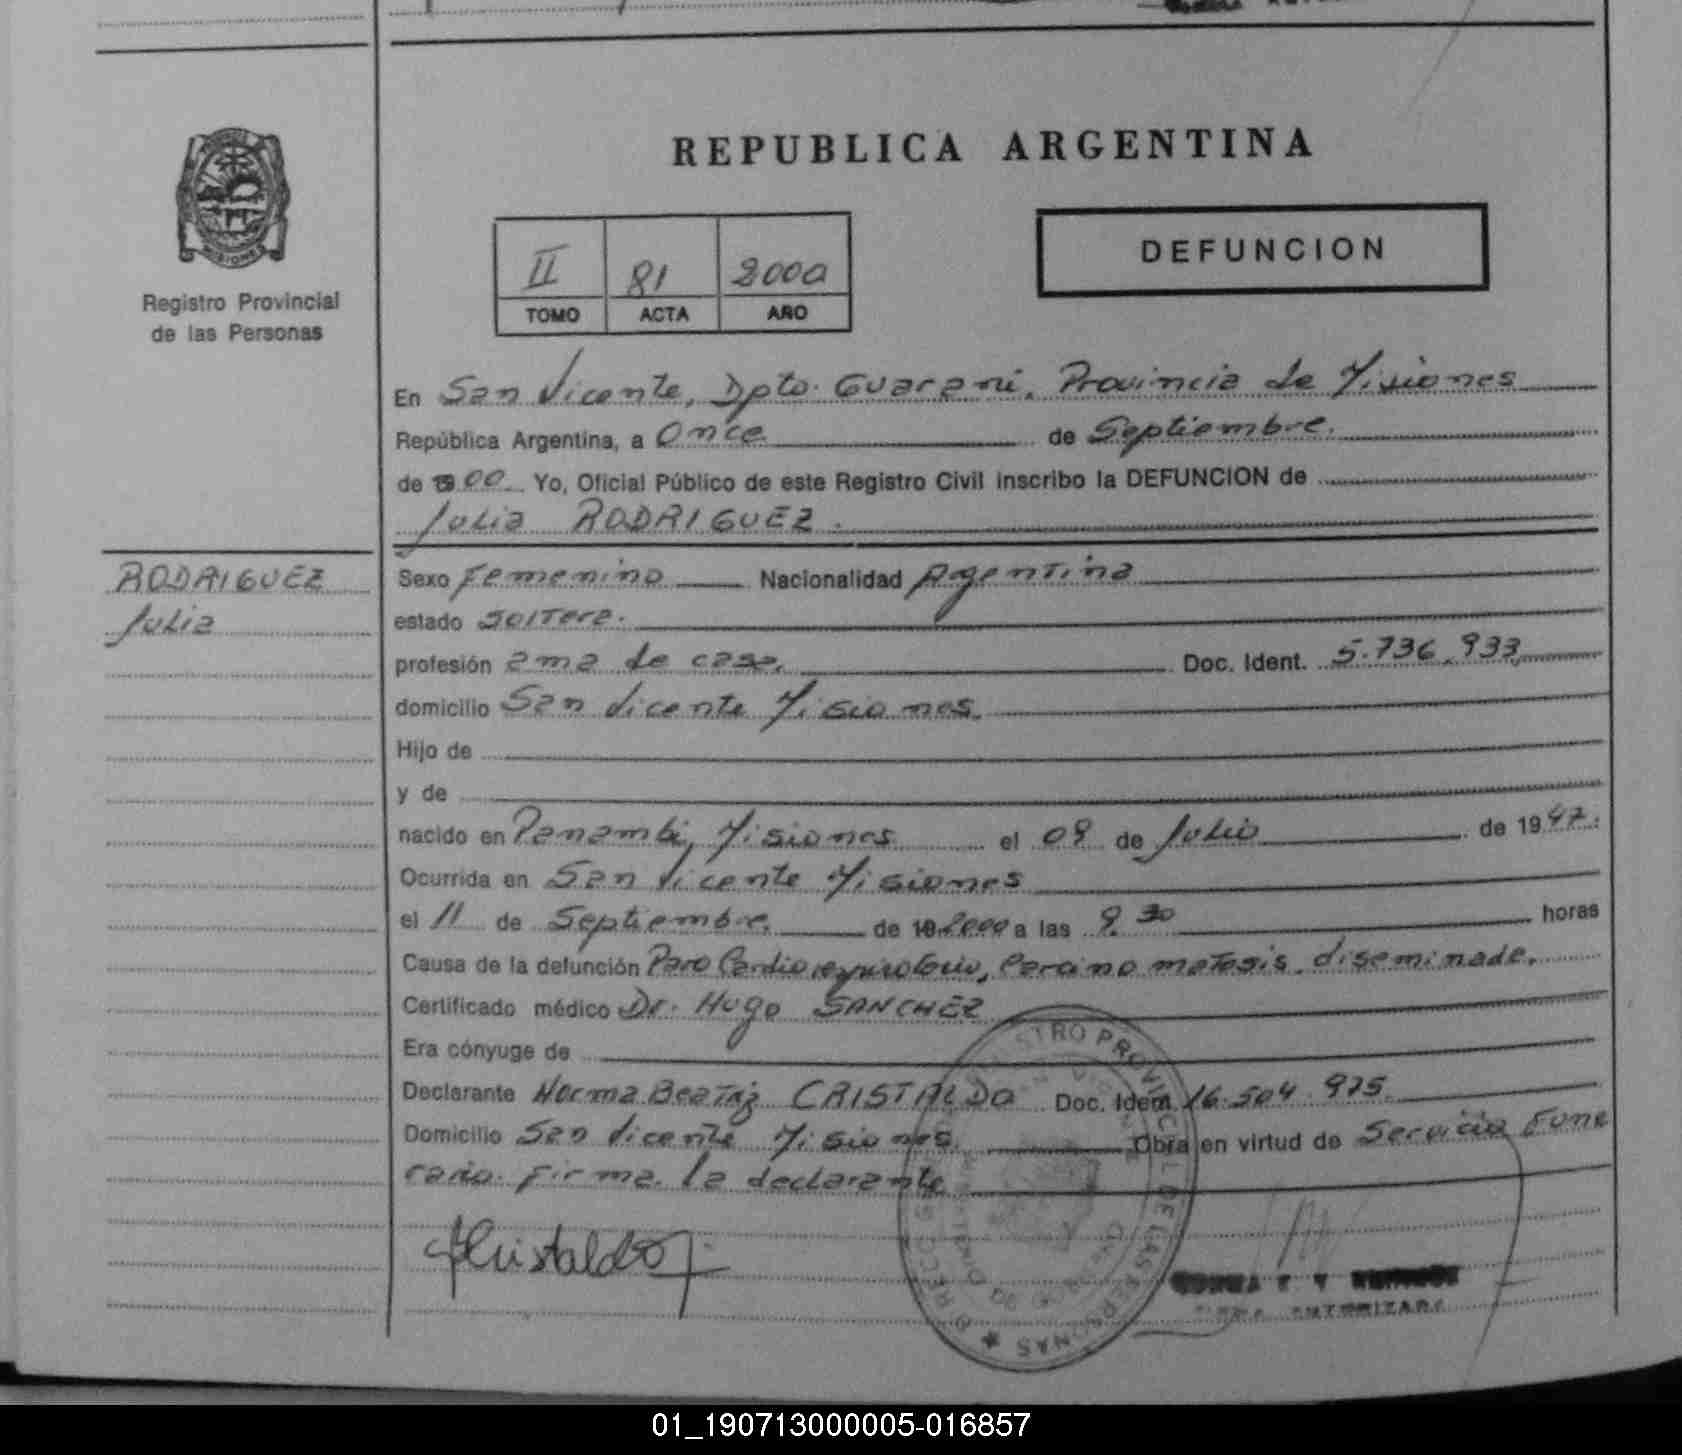 REPUBLICA ARGENTINA
MISIONES
Registro Provincial
de las Personas
II 81 2000
TOMO ACTA AÑO
DEFUNCION
En San Vicente, Dpto. Guarani, Provincia de Misiones
República Argentina, a Once de Septiembre.
de 00 Yo, Oficial Público de este Registro Civil inscribo la DEFUNCION de
Julia RODRIGUEZ.
RODRIGUEZ
Julia
Sexo femenino Nacionalidad Argentina
estado soltera.
profesión ama de casa. Doc. Ident. 5.736.933
domicilio San Vicente Misiones.
Hijo de
y de
nacido en Panambi, Misiones el 09 de Julio de 1947.
Ocurrida en San Vicente Misiones
el 11 de Septiembre. de 2000 a las 9.30 horas
Causa de la defunción Paro Cardiorespiratorio, Carcinomatosis diseminada.
Certificado médico Dr. Hugo SANCHEZ
Era cónyuge de
Declarante Norma Beatriz CRISTALDO Doc. Ident. 16.504.975.
Domicilio San Vicente Misiones. Obra en virtud de Servicio Fune
rario. Firma la declarante
Cristaldo
REGISTRO PROVINCIAL DE LAS PERSONAS
FIRMA AUTORIZADA
01_190713000005-016857